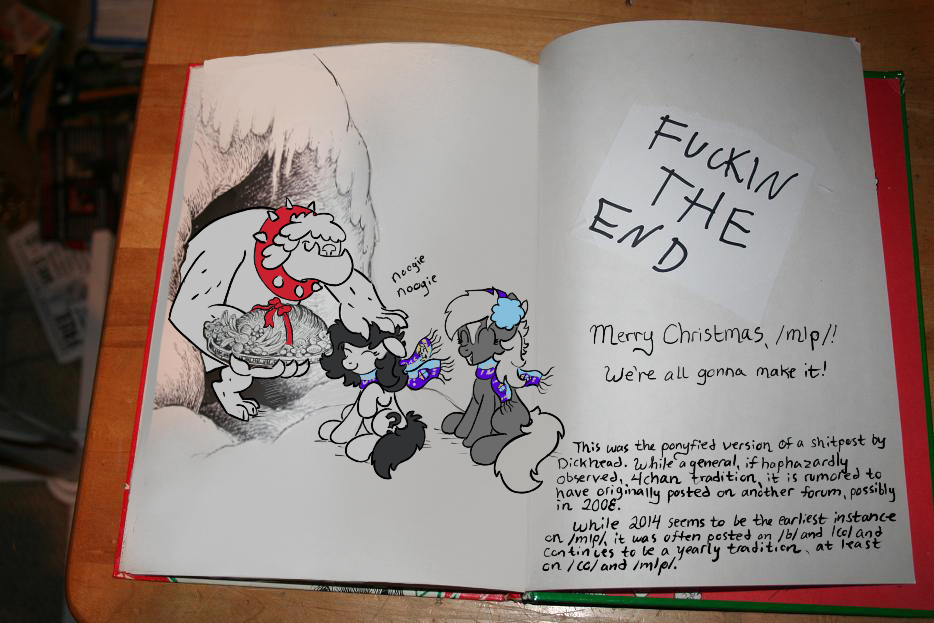 noogie
noogie
FUCKIN
THE
END
Merry Christmas, /mlp/!
We're all gonna make it!
This was the ponyfied version of a shitpost by
Dickhead. While a general, if haphazardly
observed, 4chan tradition, it is rumored to
have originally posted on another forum, possibly
in 2008.
While 2014 seems to be the earliest instance
on /mlp/, it was often posted on /b/ and /co/ and
continues to be a yearly tradition, at least
on /co/ and /mlp/.